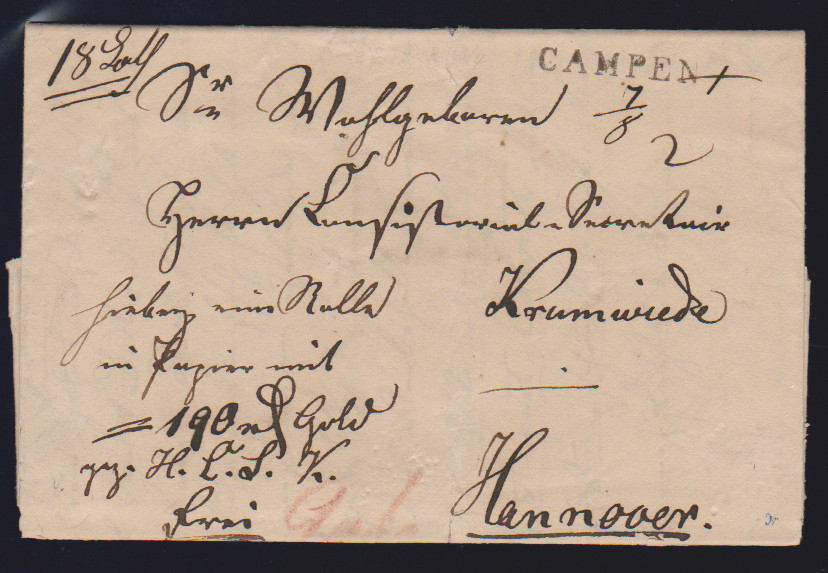 18 Loth
CAMPEN
Sr Wohlgeboren
7/8
2
Herrn Consistorial-Secretair
Krumwiede
hiebey eine Rolle
in Papier mit
=190 Gold
gez. H. C. S. K.
frei
Hannover.